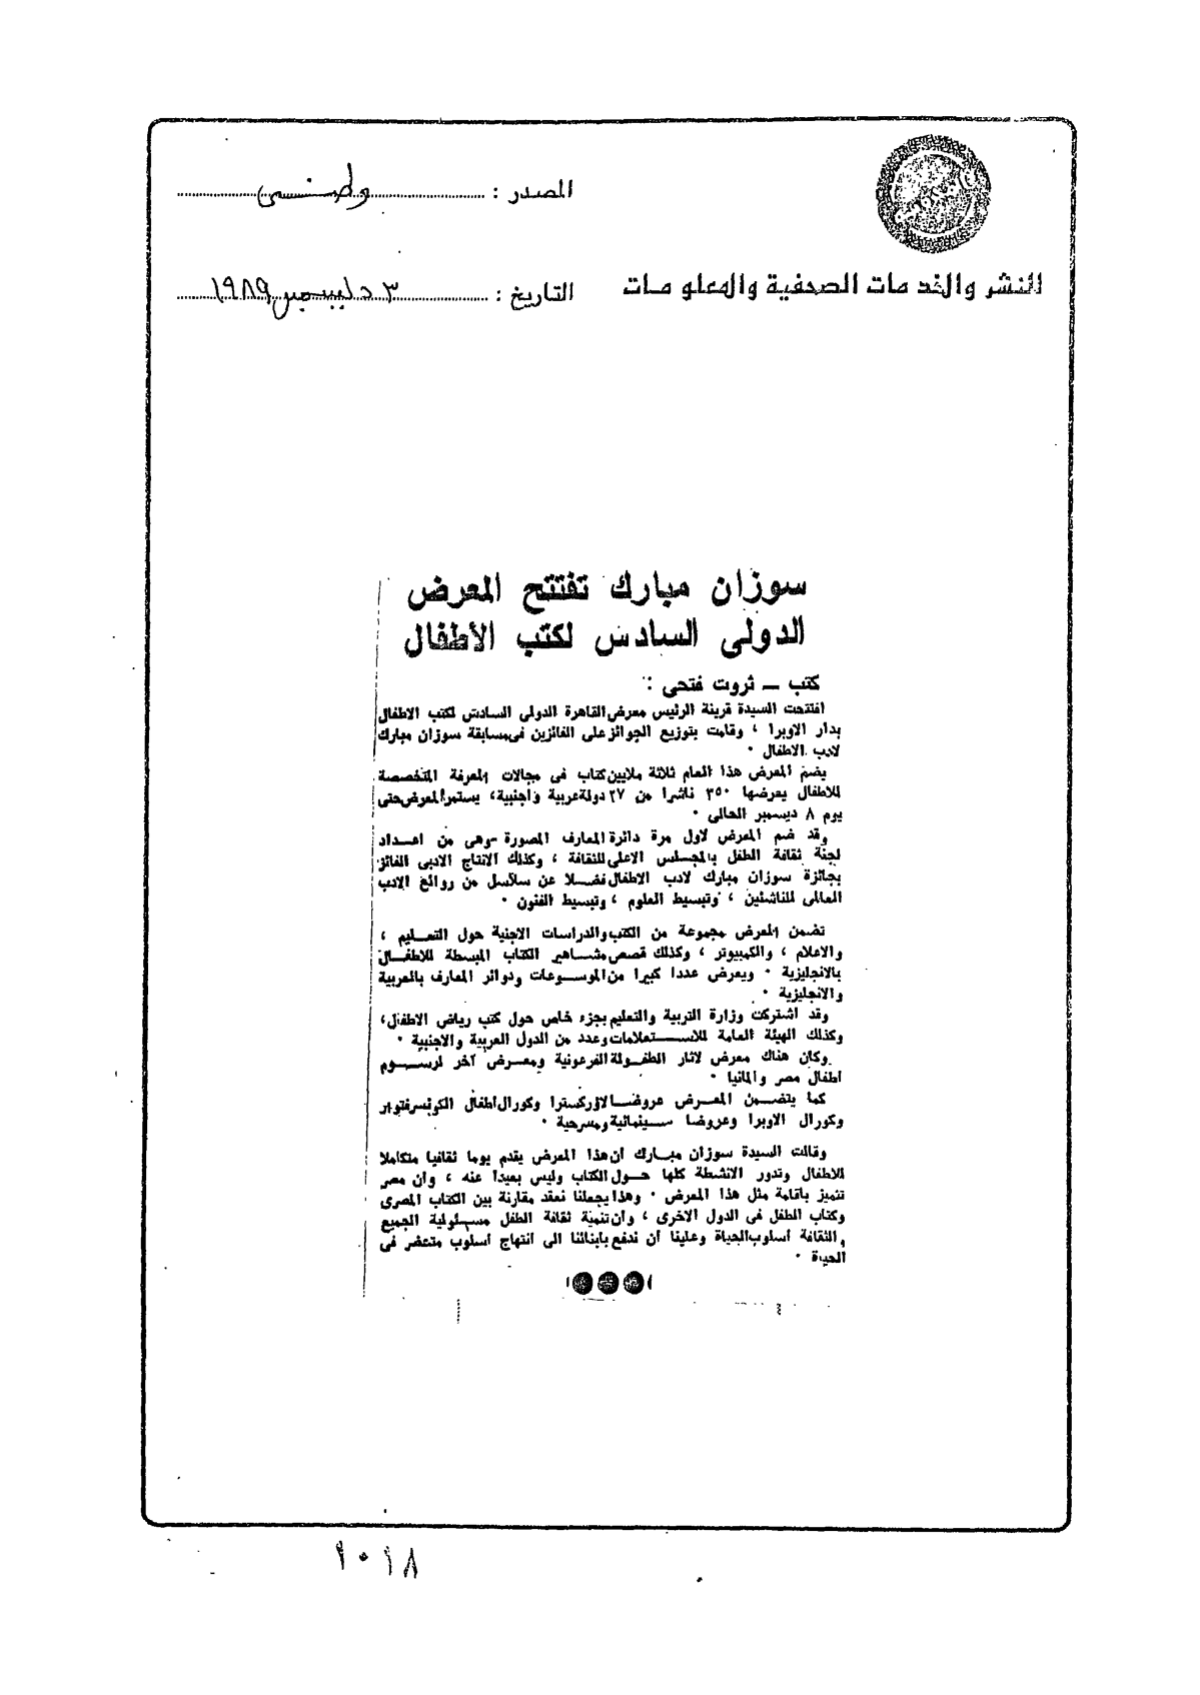 المصدر : وطني
النشر والخدمات الصحفية والمعلومات
التاريخ : ٣ ديسمبر ١٩٨٩
سوزان مبارك تفتتح المعرض
الدولى السادس لكتب الأطفال
كتب ــ ثروت فتحى :
افتتحت السيدة قرينة الرئيس معرض القاهرة الدولى السادس لكتب الاطفال
بدار الاوبرا ، وقامت بتوزيع الجوائز على الفائزين فى مسابقة سوزان مبارك
لادب الاطفال ٠
يضم المعرض هذا العام ثلاثة ملايين كتاب فى مجالات المعرفة المتخصصة
للاطفال يعرضها ٣٥٠ ناشرا من ٢٧ دولة عربية واجنبية، يستمر المعرض حتى
يوم ٨ ديسمبر الحالى ٠
وقد ضم المعرض لاول مرة دائرة المعارف المصورة -وهى من اعداد
لجنة ثقافة الطفل بالمجلس الاعلى للثقافة ، وكذلك الانتاج الادبى الفائز
بجائزة سوزان مبارك لادب الاطفال فضلا عن سلاسل من روائع الادب
العالى للناشئين ، وتبسيط العلوم ، وتبسيط الفنون ٠
تضمن المعرض مجموعة من الكتب والدراسات الاجنبة حول التعليم ،
والاعلام ، والكمبيوتر ، وكذلك قصص مشاهير الكتاب المبسطة للاطفال
بالانجليزية ٠ ويعرض عددا كبيرا من الموسوعات ودوائر المعارف بالعربية
والانجليزية ٠
وقد اشتركت وزارة التربية والتعليم بجزء خاص حول كتب رياض الاطفال،
وكذلك الهيئة العامة للاستعلامات وعدد من الدول العربية والاجنبية ٠
وكان هناك معرض لاثار الطفولة الفرعونية ومعرض آخر لرسوم
اطفال مصر والمانيا ٠
كما يتضمن المعرض عروضا لاوركسترا وكورال اطفال الكونسرفتوار
وكورال الاوبرا وعروضا سينمائية ومسرحية ٠
وقالت السيدة سوزان مبارك ان هذا المعرض يقدم يوما ثقافيا متكاملا
للاطفال وتدور الانشطة كلها حول الكتاب وليس بعيدا عنه ، وان مصر
تتميز باقامة مثل هذا المعرض ٠ وهذا يجعلنا نعقد مقارنة بين الكتاب المصرى
وكتاب الطفل فى الدول الاخرى ، وان تنمية ثقافة الطفل مسئولية الجميع
والثقافة اسلوب الحياة وعلينا ان ندفع بابنائنا الى انتهاج اسلوب متحضر فى
الحياة ٠
٢٠١٨